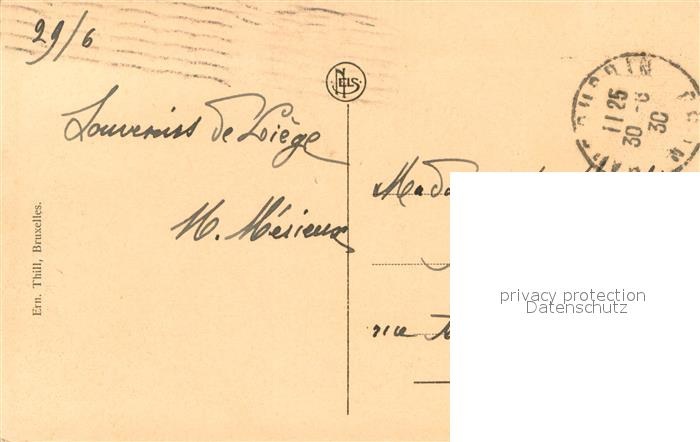 29/6
NELS
Souvenirs de Liège
M. Mérieux
Ern. Thill, Bruxelles.
11 25
30-6
30
rue
privacy protection
Datenschutz